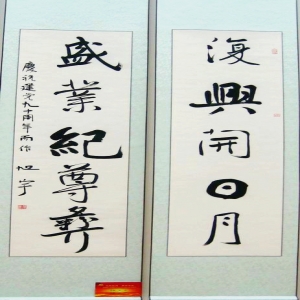 復興開日月
盛業紀尊彝
慶祝建黨九十周年而作